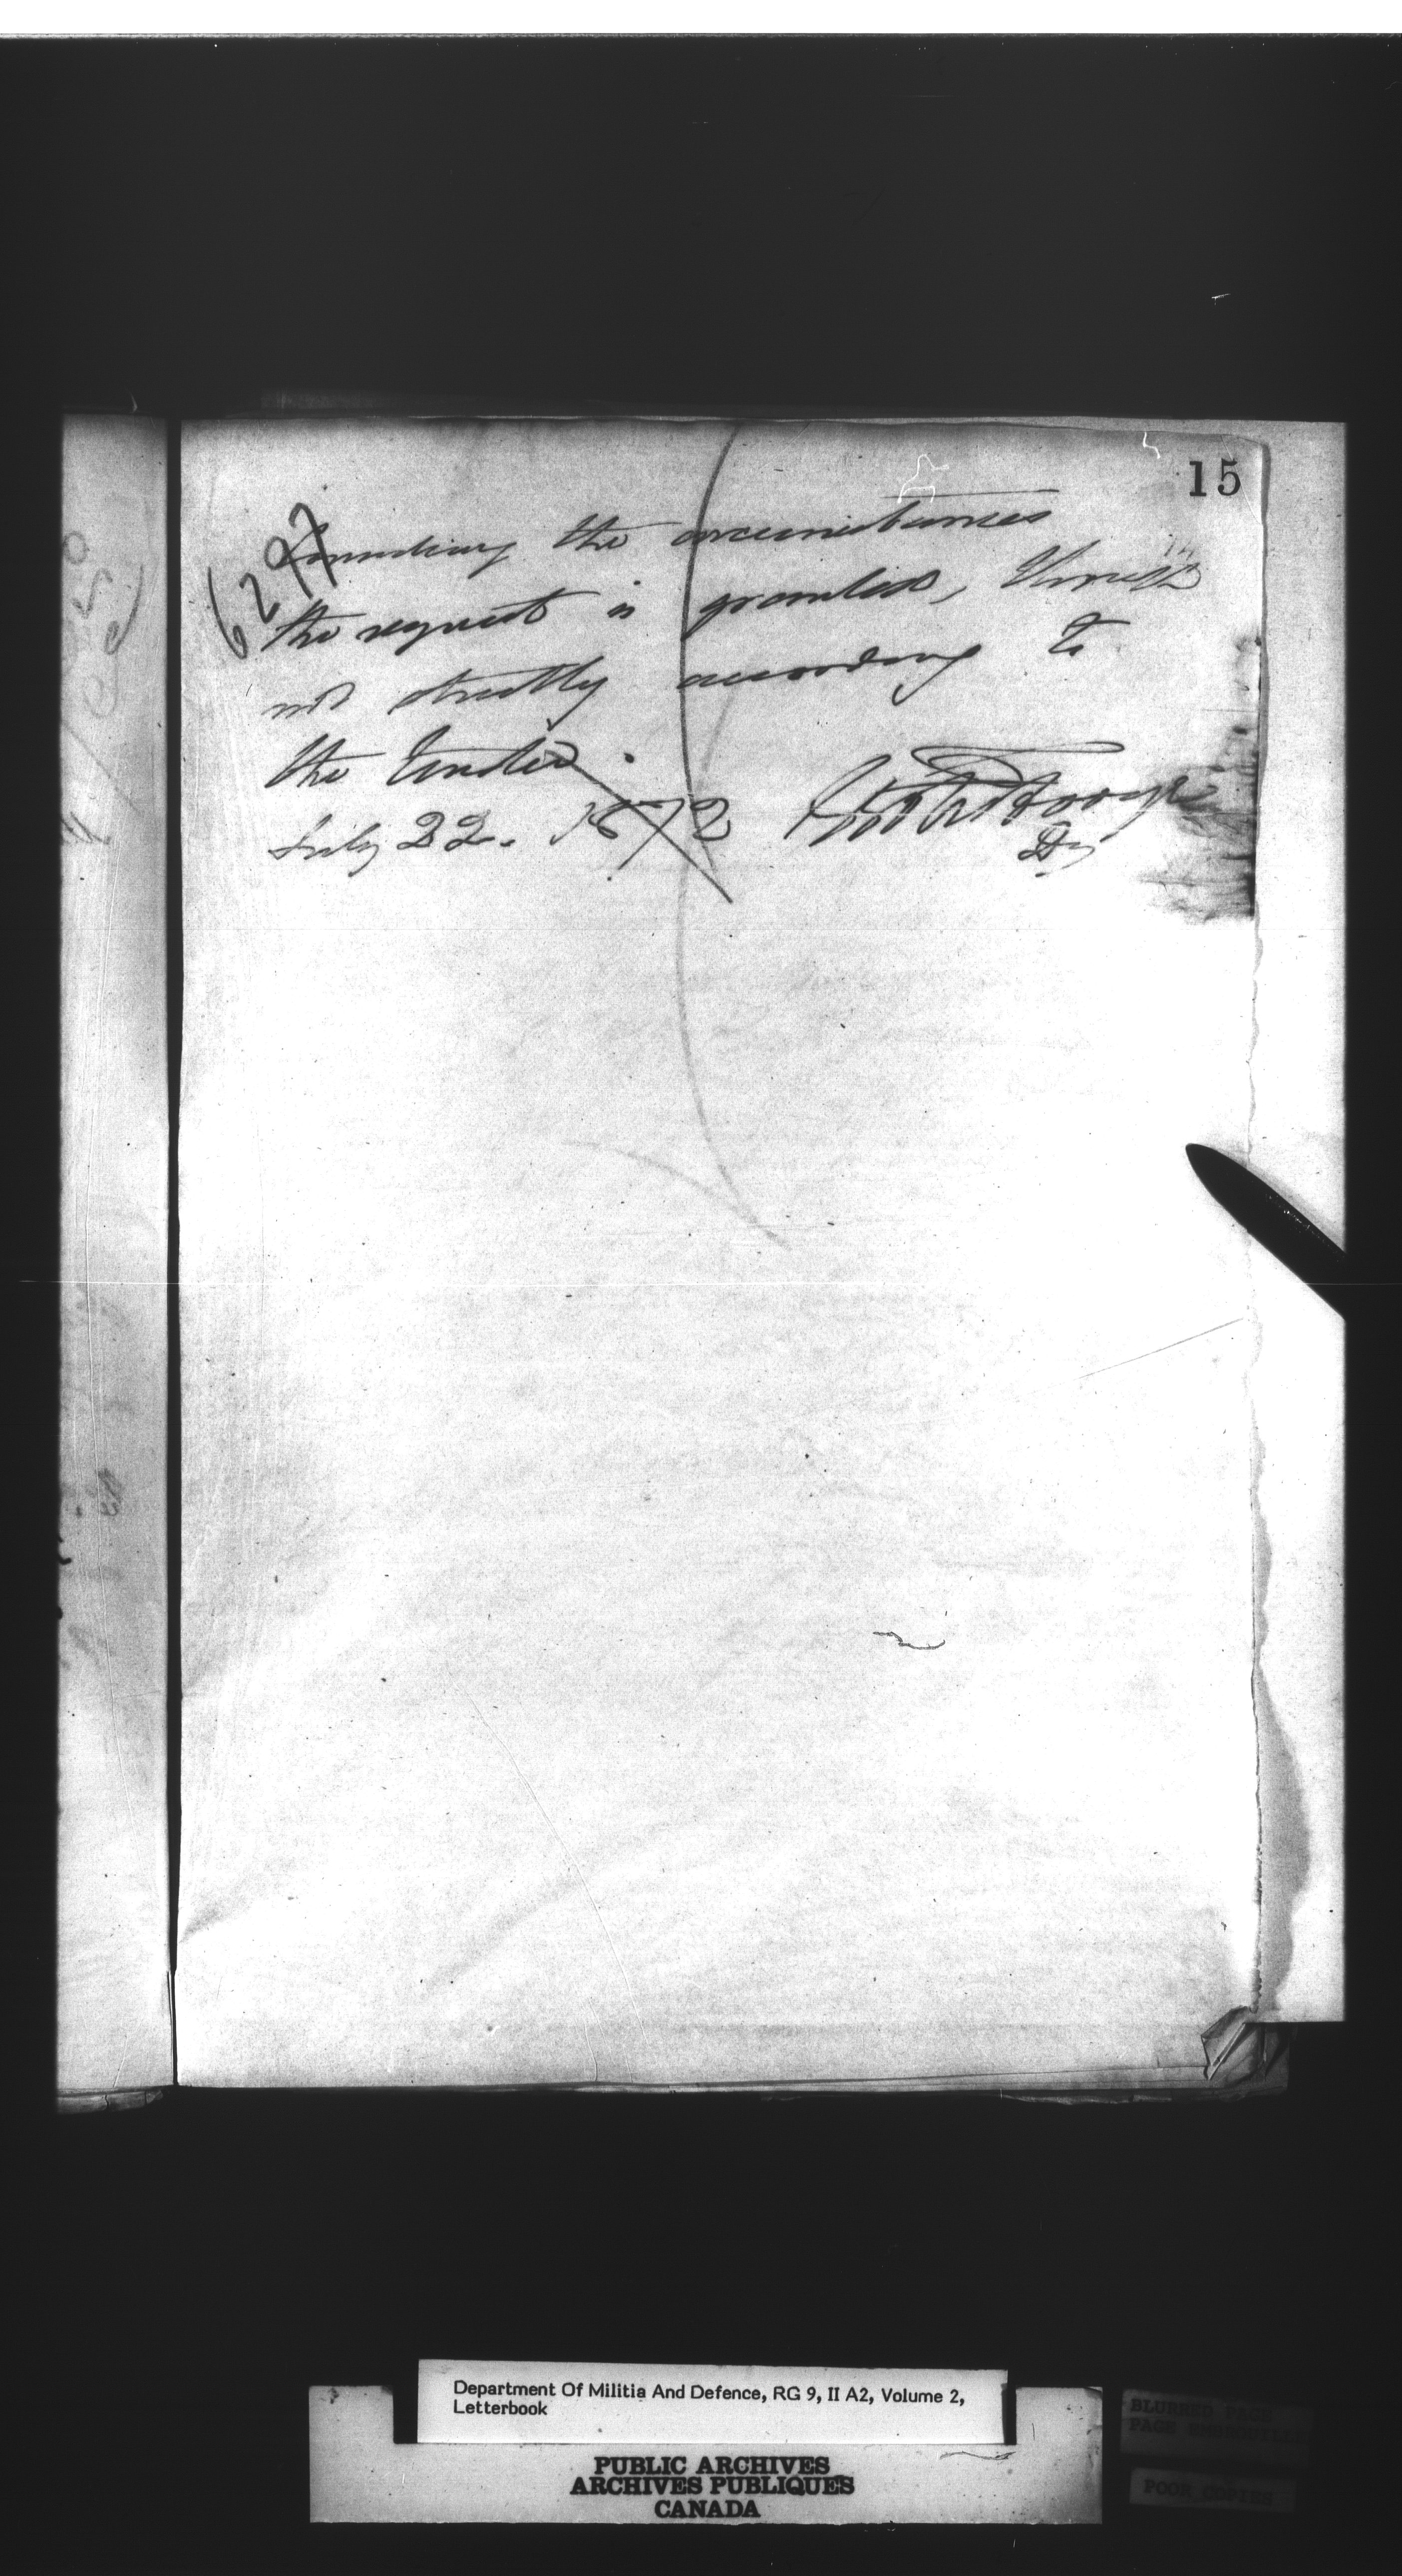 15
6297
Considering the circumstances
the request is granted, though
not strictly according to
the tender.
July 22. 1872
Department Of Militia And Defence, RG 9, II A2, Volume 2,
Letterbook
PUBLIC ARCHIVES
ARCHIVES PUBLIQUES
CANADA
BLURRED PAGE
POOR COPIES